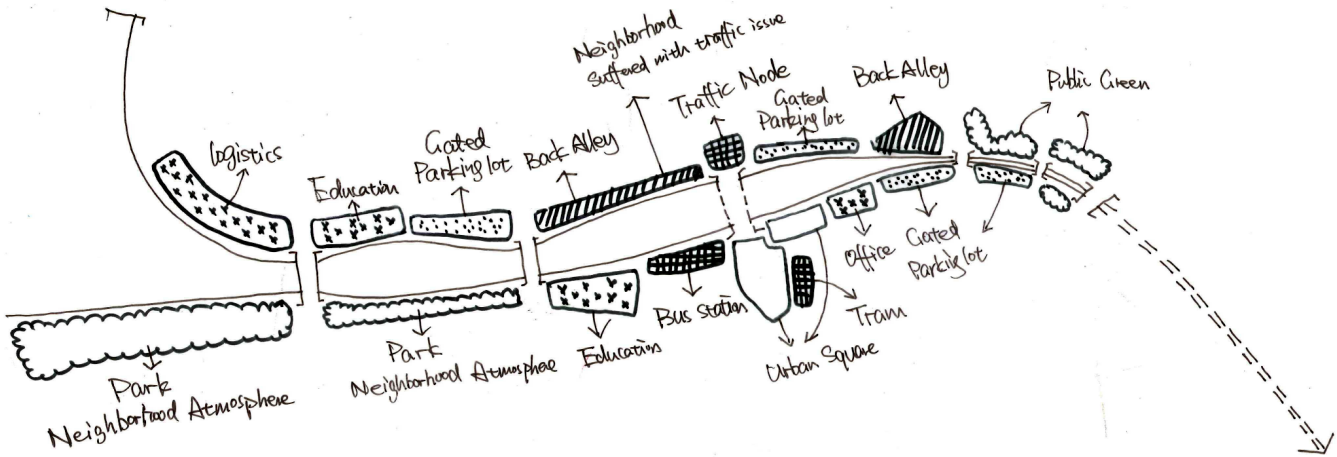 Neighborhood
suffered with traffic issue
Traffic Node
Gated
Parking lot
Back Alley
Public Green
Logistics
Education
Gated
Parking lot
Back Alley
Office
Gated
Parking lot
Bus station
Tram
Urban Square
Education
Park
Neighborhood Atmosphere
Park
Neighborhood Atmosphere